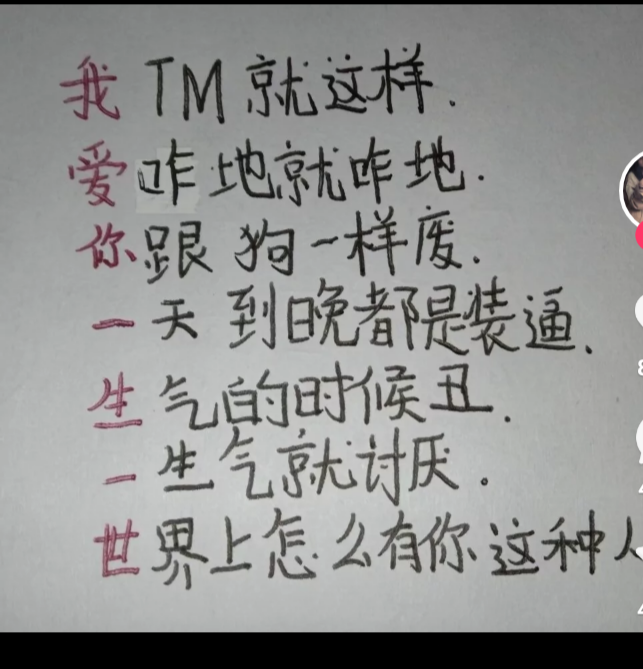 我TM就这样.
爱咋地就咋地.
你跟狗一样废.
一天到晚都是装逼.
生气的时候丑.
一生气就讨厌.
世界上怎么有你这种人